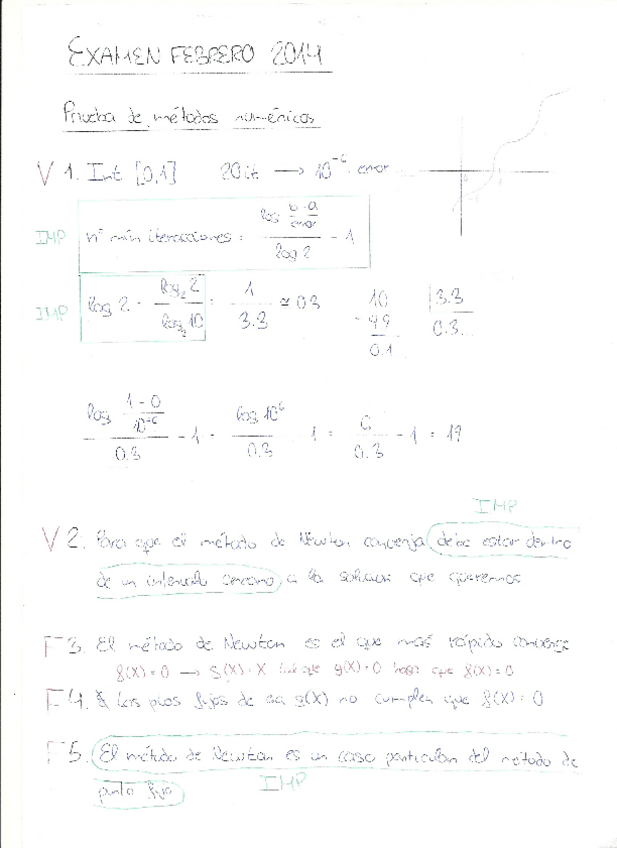 EXAMEN FEBRERO 2014
Prueba de métodos numéricos
V 1. Int [0,1] 20 it → 10^-6 error
IMP nº min iteracciones = log (b-a / error) / log 2 - 1
IMP log 2 = log₂ 2 / log₂ 10 = 1 / 3.3 ≃ 0.3
10 | 3.3
- 99 0.3...
0.1
log (1-0 / 10^-6) / 0.3 - 1 = log 10^6 / 0.3 - 1 = 6 / 0.3 - 1 = 19
IMP
V 2. Para que el método de Newton converja debe estar dentro
de un intervalo cercano a la solución que queremos
F 3. El método de Newton es el que más rápido converge
g(x) = 0 hace que f(x) = 0
F 4. Los ptos fijos de g(x) no cumplen que f(x) = 0
F 5. El método de Newton es un caso particular del método de
punto fijo
IMP